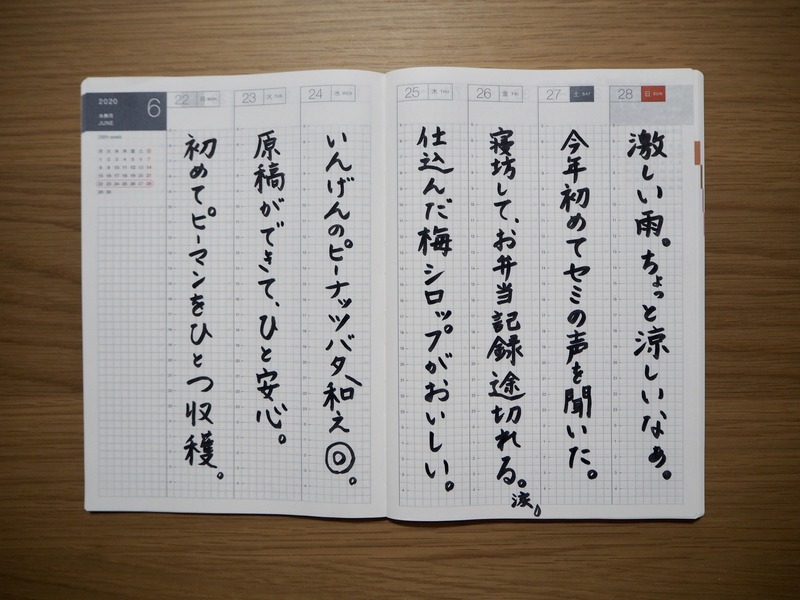 2020
6
水無月
JUNE
22 月 MON
初めてピーマンをひとつ収穫。
23 火 TUE
原稿ができて、ひと安心。
24 水 WED
いんげんのピーナッツバタ和え◎。
25 木 THU
仕込んだ梅シロップがおいしい。
26 金 FRI
寝坊して、お弁当記録途切れる。
涙。
27 土 SAT
今年初めてセミの声を聞いた。
28 日 SUN
激しい雨。ちょっと涼しいなぁ。